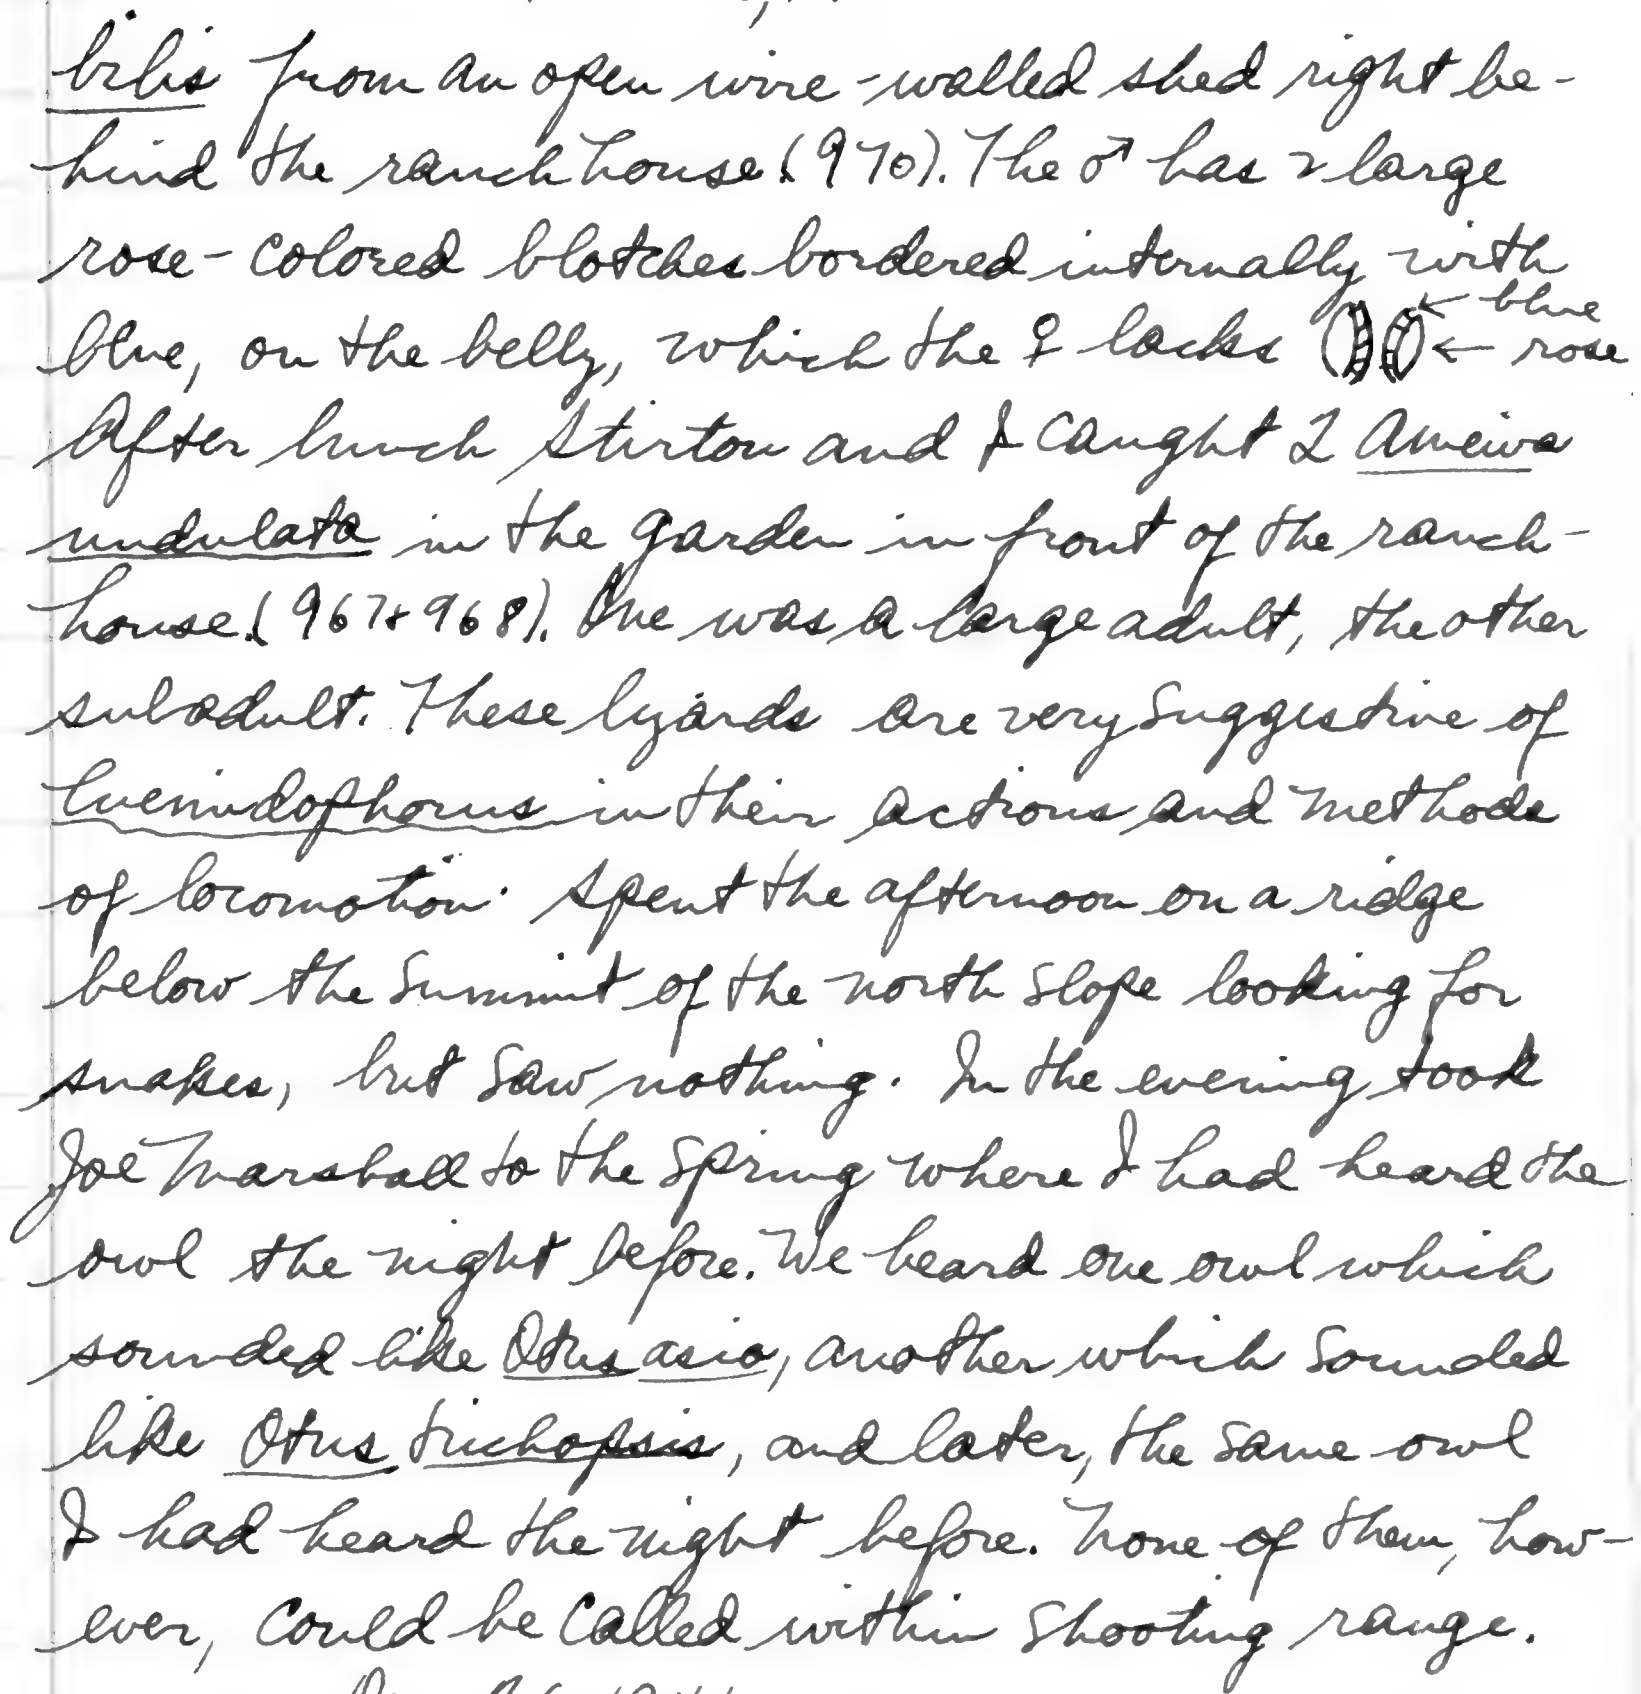 bilis from an open wire-walled shed right be-
hind the ranch house (970). The ♂ has 2 large
rose-colored blotches bordered internally with
blue, on the belly, which the ♀ lacks ← blue
← rose
After lunch Stirton and I caught 2 Ameiva
undulata in the garden in front of the ranch-
house (967 & 968). One was a large adult, the other
subadult. These lizards are very suggestive of
Cnemidophorus in their actions and methods
of locomotion. Spent the afternoon on a ridge
below the summit of the north slope looking for
snakes, but saw nothing. In the evening took
Joe Marshall to the spring where I had heard the
owl the night before. We heard one owl which
sounded like Otus asio, another which sounded
like Otus trichopsis, and later, the same owl
I had heard the night before. None of them, how-
ever, could be called within shooting range.